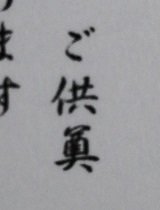 ご供奠
ます